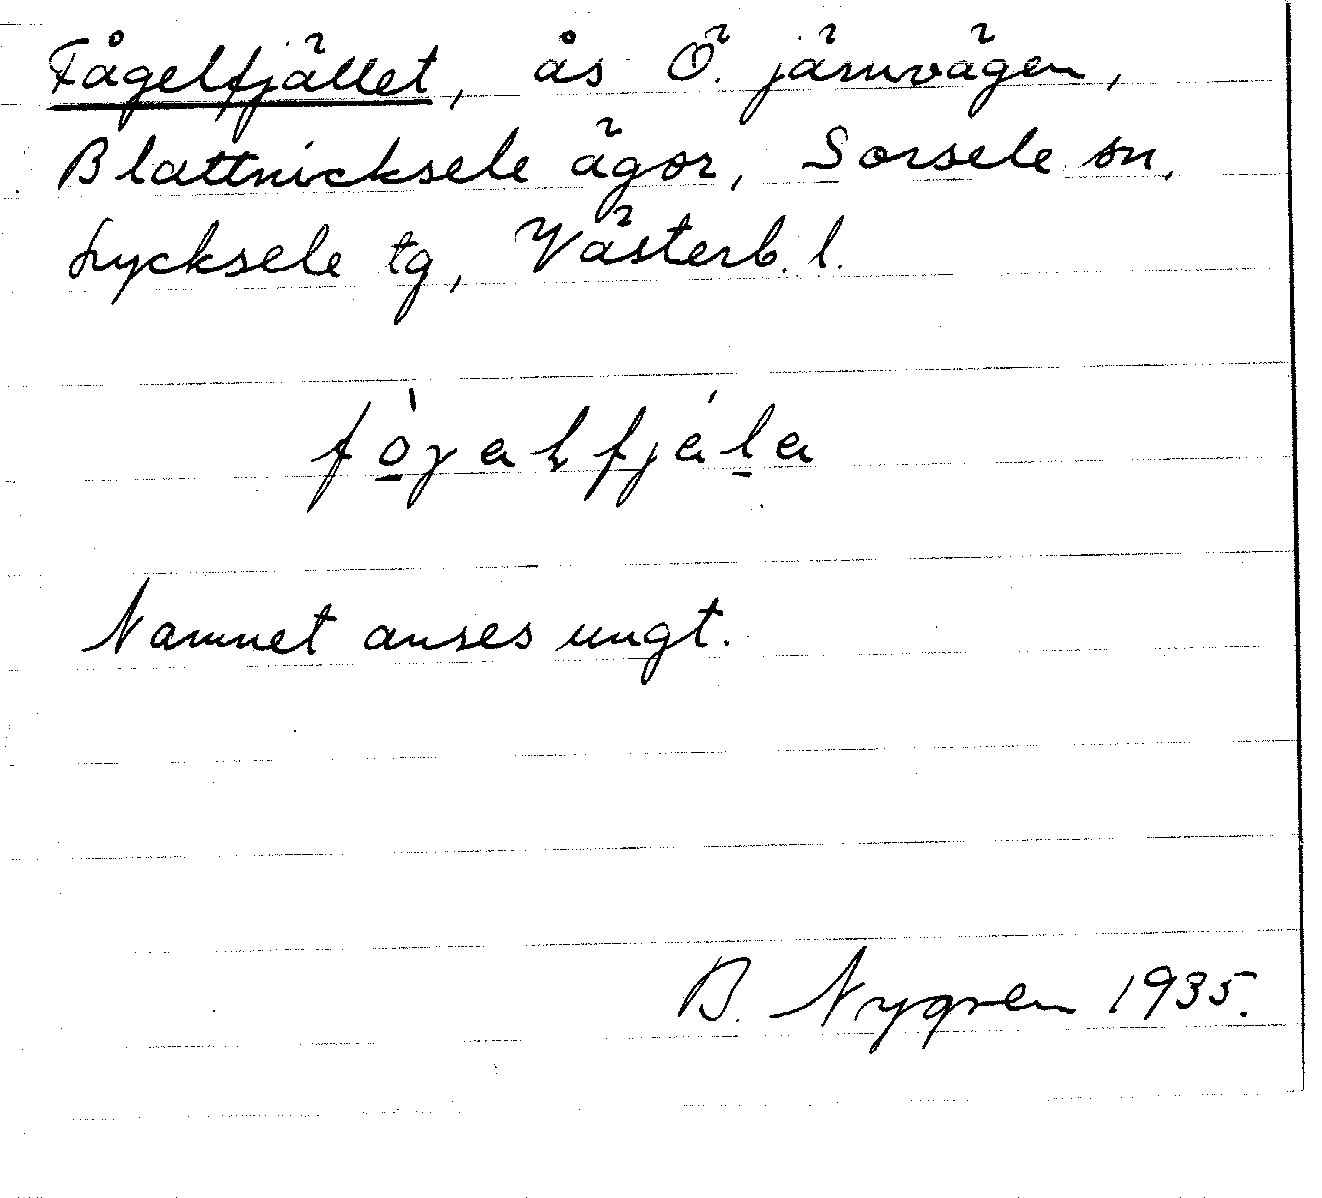 Fågelfjället, ås Ö. järnvägen,
Blattnicksele ägor, Sorsele sn,
Lycksele tg, Västerb. l.
Namnet anses ungt.
B. Nygren 1935.